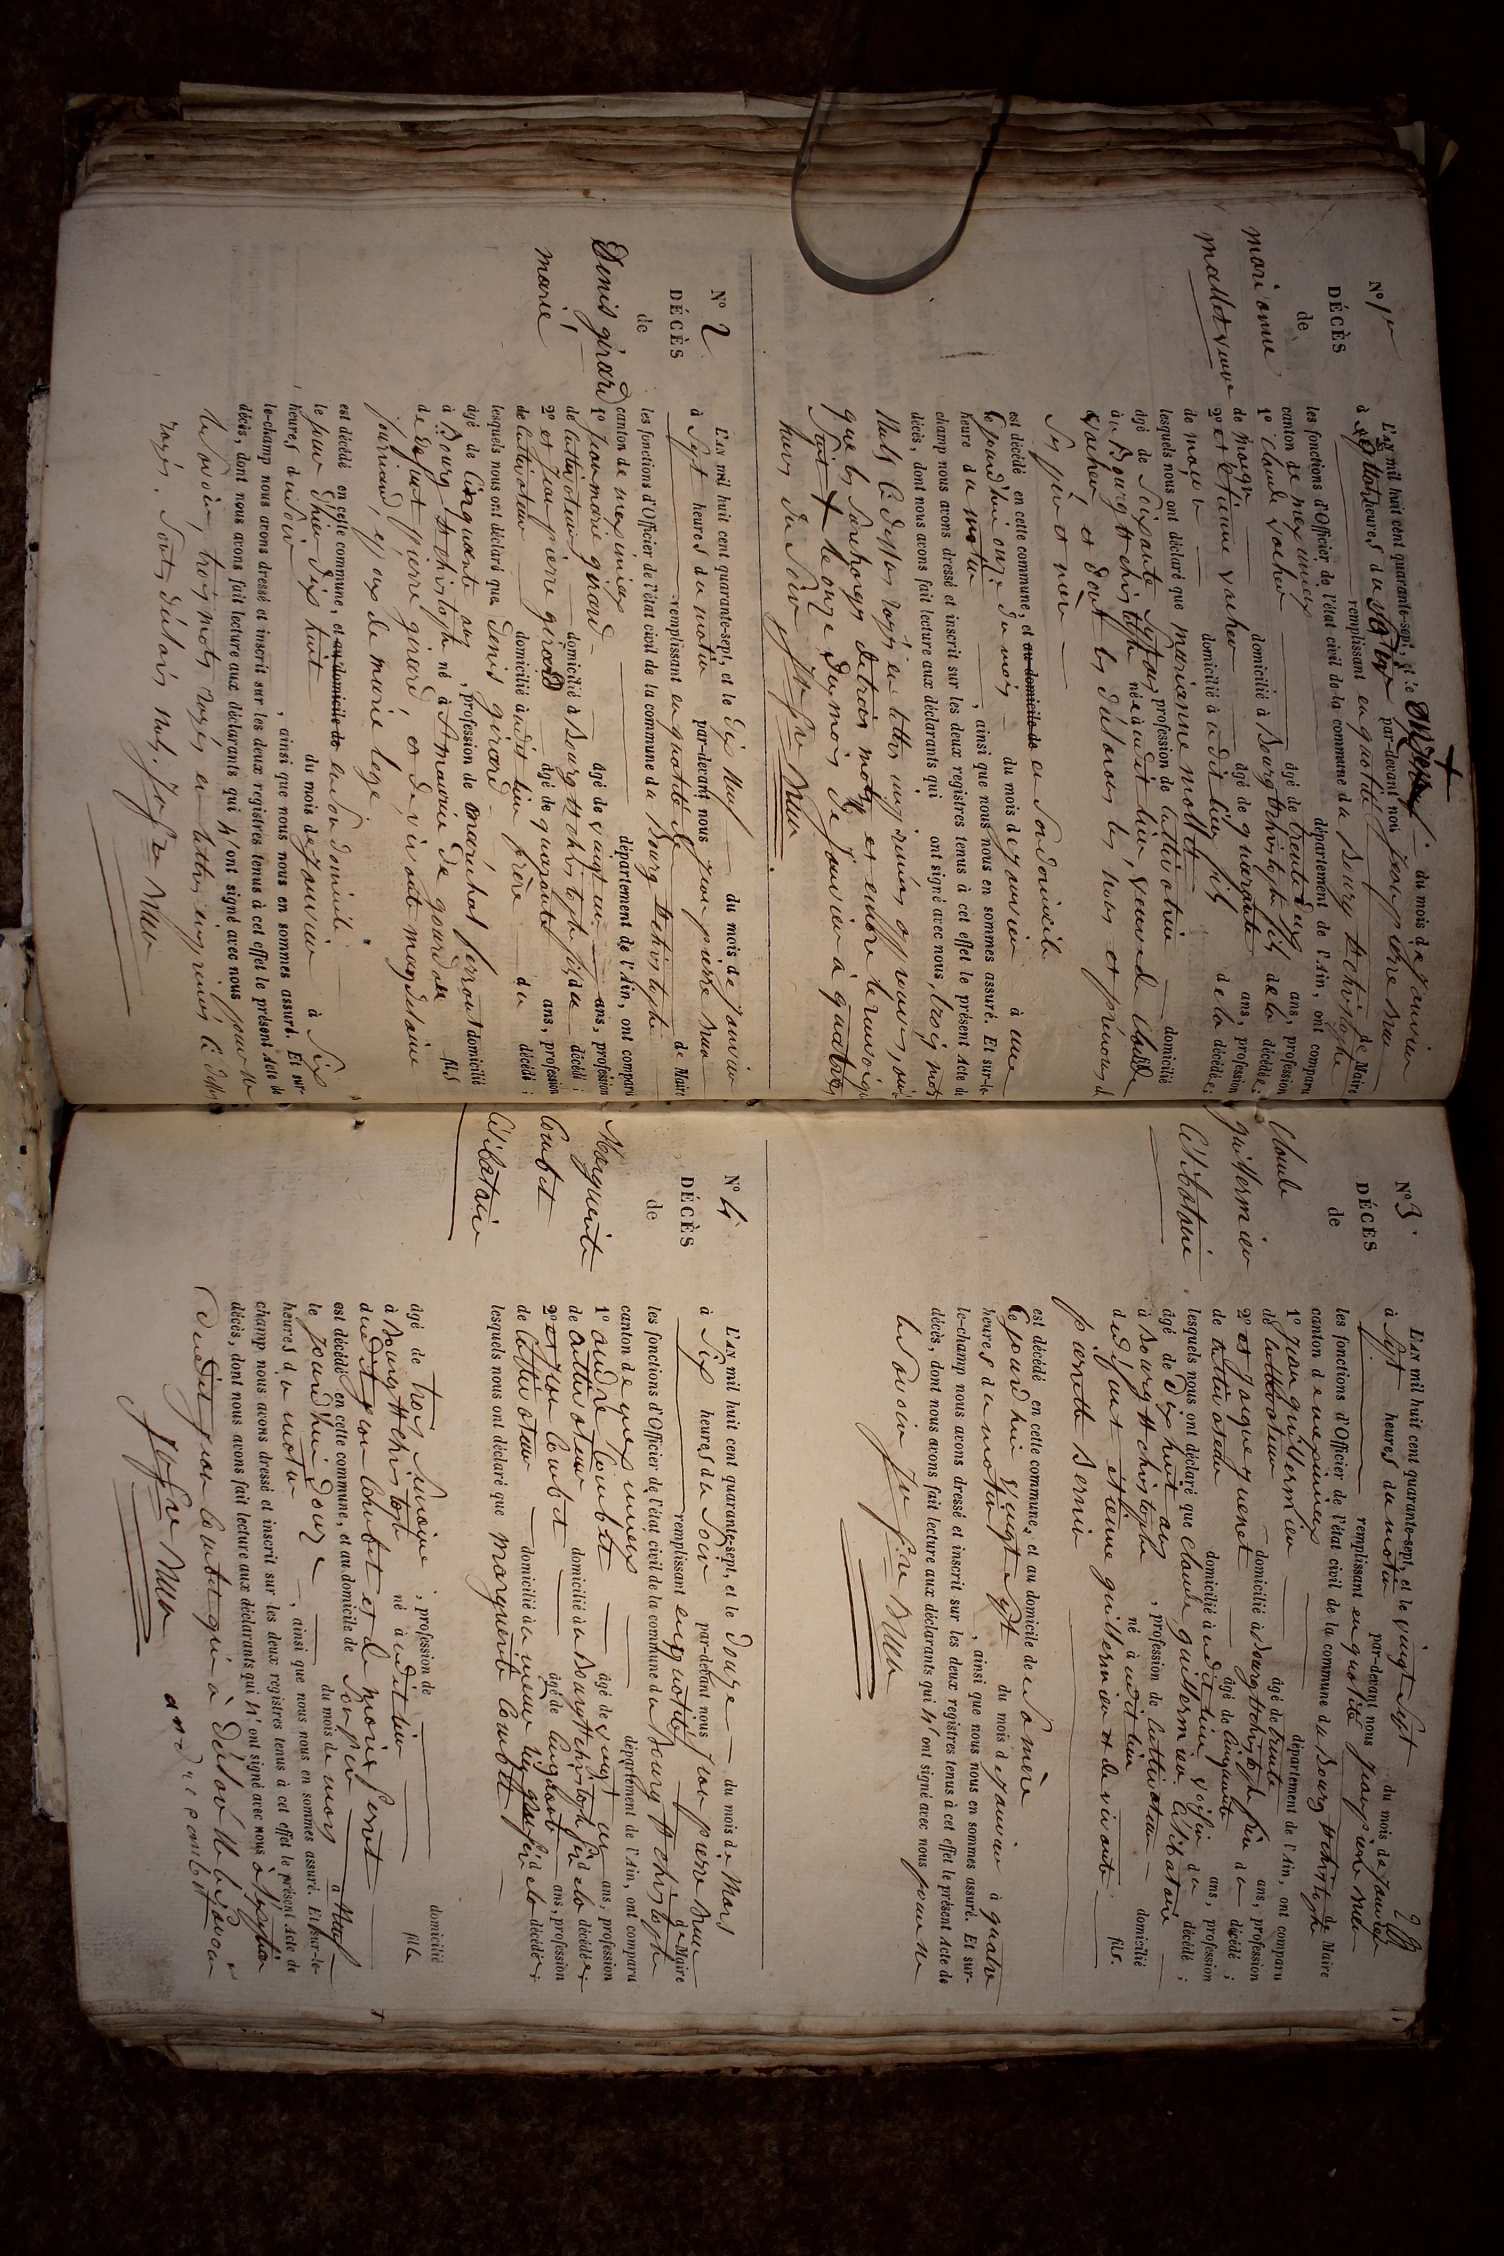 N° 1er
DÉCÈS
de
marianne
mollet veuve
L'AN mil huit cent quarante-sept, et le onze du mois de janvier
à heures du par-devant nous jean pierre
remplissant en qualité de Maire
les fonctions d'Officier de l'état civil de la commune du Bourg St christophe
canton de meximieux département de l'Ain, ont comparu
1° claude vacher âgé de trente deux ans, profession
de maçon domicilié à Bourg St christophe fils de la décédée ;
2° et étienne vacher âgé de quarante ans, profession
de maçon domicilié à udit lieu fils de la décédée ;
lesquels nous ont déclaré que marianne mollet
âgé de soixante sept ans, profession de cultivatrice domicilié
à u Bourg St christophe né à udit lieu, veuve de claude
vacher, et dont les déclarans les noms et prénoms de
ses père et mère
est décédé en cette commune, et au domicile de en son domicile
le jourd'hui onze du mois du mois de janvier à une
heure du matin , ainsi que nous nous en sommes assuré. Et sur-le-
champ nous avons dressé et inscrit sur les deux registres tenus à cet effet le présent Acte de
décès, dont nous avons fait lecture aux déclarants qui ont signé avec nous, trois mots
nuls ci dessus rayés en lettres
que les surcharges de trois mots et encore le renvoi
soit + le onze du mois de janvier à quatre
heures du soir
N° 2
DÉCÈS
de
Denis girard
marié
L'AN mil huit cent quarante-sept, et le dix neuf du mois de janvier
à sept heures du matin par-devant nous jean pierre
remplissant en qualité de Maire
les fonctions d'Officier de l'état civil de la commune du Bourg St christophe
canton de meximieux département de l'Ain, ont comparu
1° jean marie girard âgé de vingt un ans, profession
de cultivateur domicilié à Bourg St christophe fils du décédé ;
2° et jean pierre girard âgé de quarante ans, profession
de cultivateur domicilié à udit lieu frère du décédé ;
lesquels nous ont déclaré que denis girard
âgé de cinquante ans , profession de maréchal ferrant domicilié
à Bourg St christophe né à fils
de défunt pierre girard, et de vivante
journaud, époux de marie
est décédé en cette commune, et au domicile de en son domicile
le jour d'hier dix huit du mois de janvier à six
heures du soir , ainsi que nous nous en sommes assuré. Et sur-
le-champ nous avons dressé et inscrit sur les deux registres tenus à cet effet le présent Acte de
décès, dont nous avons fait lecture aux déclarants qui n'ont signé avec nous pour ne
le savoir, trois mots rayés en lettres ci dessus
rayés. sont déclarés nuls.
N° 3.
DÉCÈS
de
Claude
guillermier
célibataire
L'AN mil huit cent quarante-sept, et le vingt sept du mois de janvier
à sept heures du matin par-devant nous jean pierre
remplissant en qualité de Maire
les fonctions d'Officier de l'état civil de la commune du Bourg St christophe
canton de meximieux département de l'Ain, ont comparu
1° jean guillermier âgé de trente ans, profession
de cultivateur domicilié à Bourg St christophe frère du décédé ;
2° et jacque guenet âgé de cinquante ans, profession
de cultivateur domicilié à udit lieu voisin du décédé ;
lesquels nous ont déclaré que claude guillermier célibataire
âgé de dix huit ans , profession de cultivateur domicilié
à Bourg St christophe né à udit lieu fils.
du défunt étienne guillermier et de vivante
pierrette
est décédé en cette commune, et au domicile de sa mère
le jourd'hui vingt sept du mois de janvier à quatre
heures du matin , ainsi que nous nous en sommes assuré. Et sur-
le-champ nous avons dressé et inscrit sur les deux registres tenus à cet effet le présent Acte de
décès, dont nous avons fait lecture aux déclarants qui n'ont signé avec nous pour ne
le savoir
N° 4
DÉCÈS
de
Marguerite
Combet
célibataire
L'AN mil huit cent quarante-sept, et le douze du mois de Mars
à six heures du soir par-devant nous jean pierre
remplissant en qualité de Maire
les fonctions d'Officier de l'état civil de la commune du Bourg St christophe
canton de meximieux département de l'Ain, ont comparu
1° andré Combet âgé de vingt ans, profession
de cultivateur domicilié à u Bourg St christophe frère de la décédée ;
2° et jean Combet âgé de cinquante ans, profession
de cultivateur domicilié à u même lieu père de la décédée ;
lesquels nous ont déclaré que marguerite Combet
âgé de trois semaine , profession de domicilié
à Bourg St christophe né à udit lieu fille
dudit jean Combet et de marie
est décédé en cette commune, et au domicile de son père
le jourd'hui douze du mois de mars à neuf
heures du matin , ainsi que nous nous en sommes assuré. Et sur-le-
champ nous avons dressé et inscrit sur les deux registres tenus à cet effet le présent Acte de
décès, dont nous avons fait lecture aux déclarants qui n'ont signé avec nous à l'exception
dudit jean Combet qui a déclaré ne le savoir
andré combet